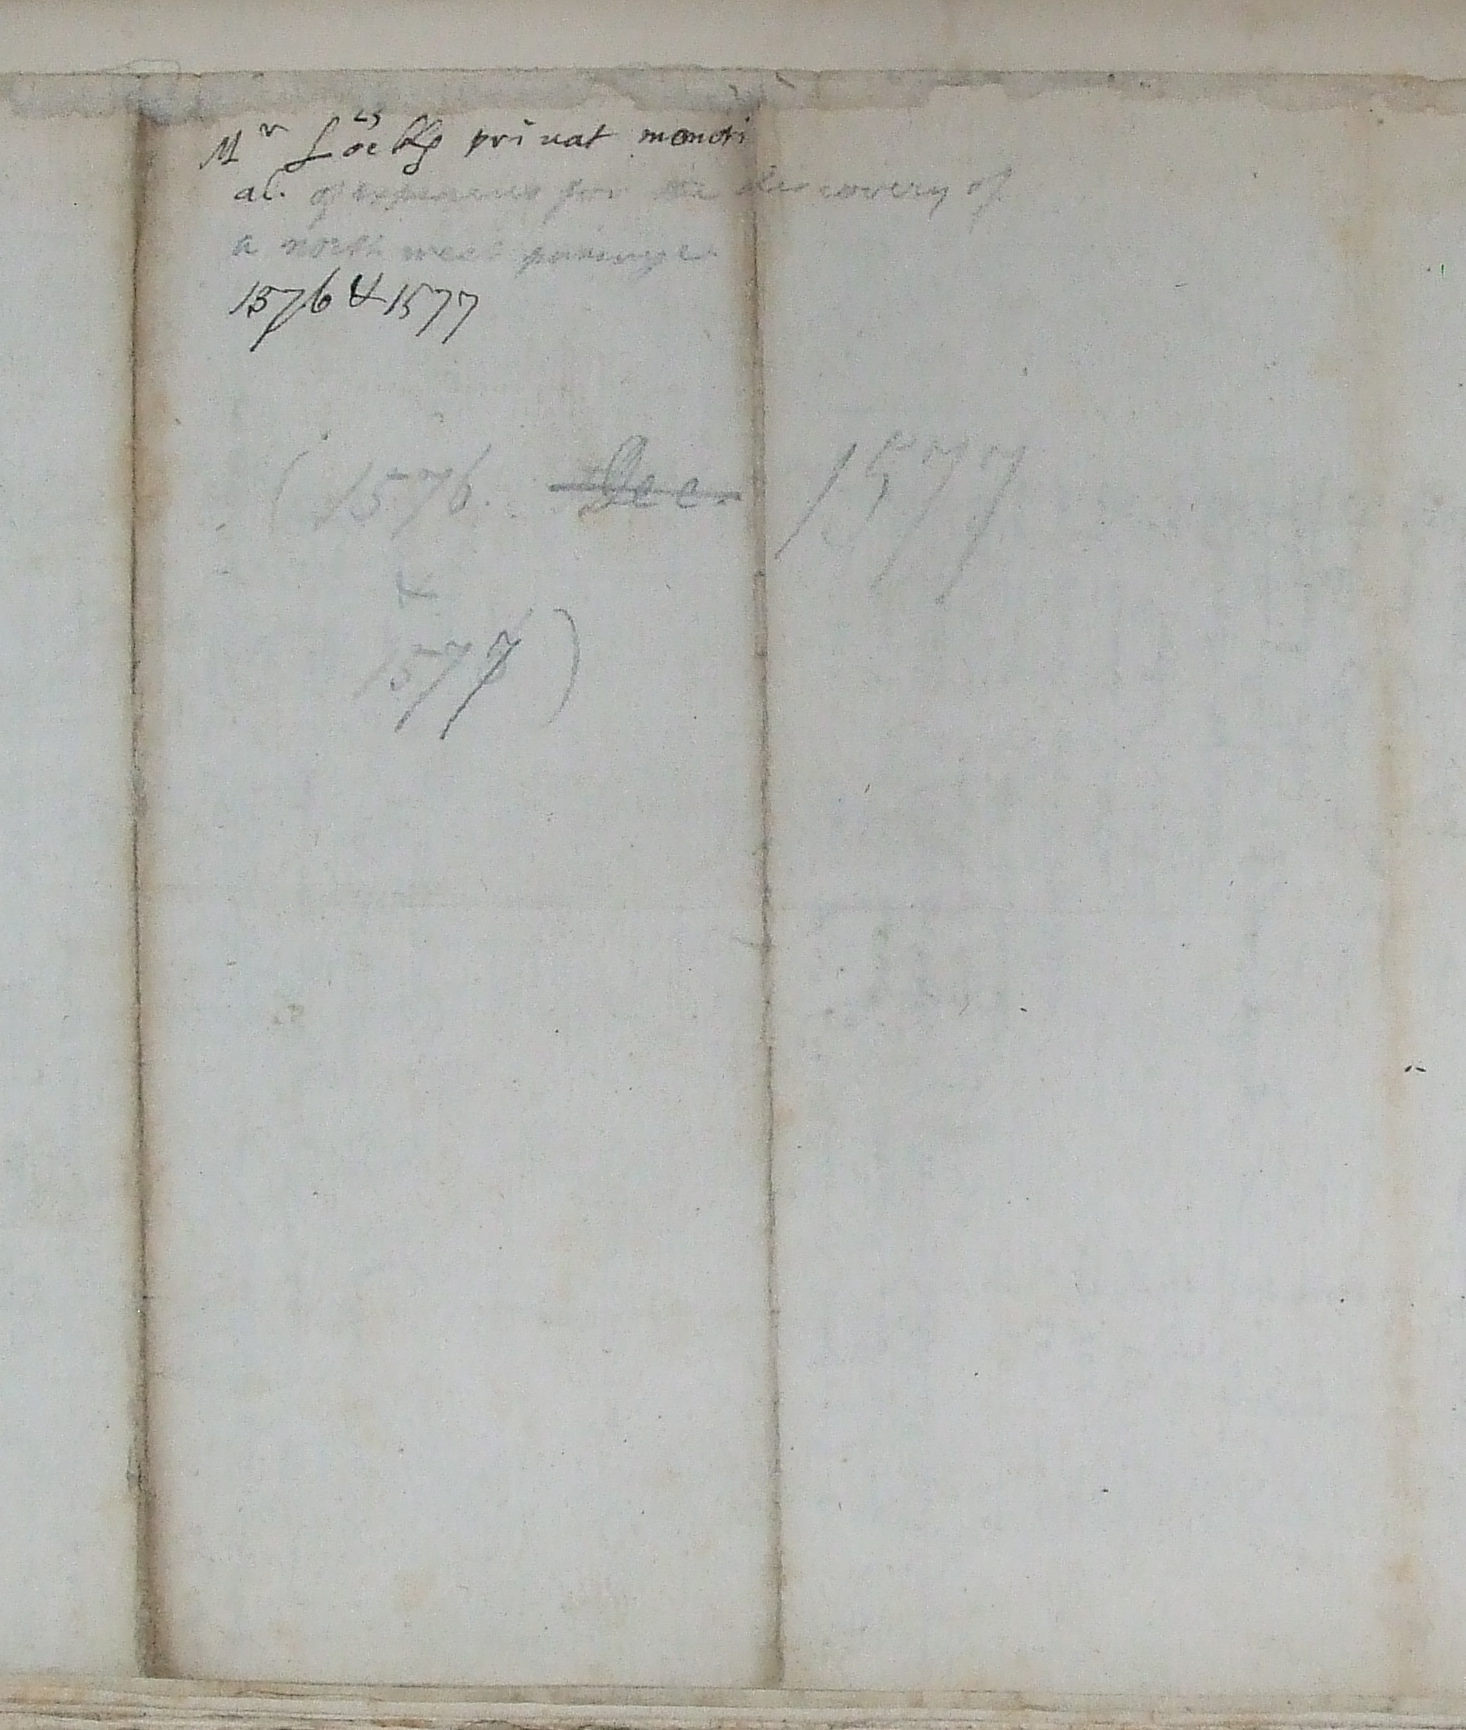 Mr Locks privat memori
al. of expences for the discovery of
a north west passage
1576 & 1577
(1576. Dec. 1577
&
1577)